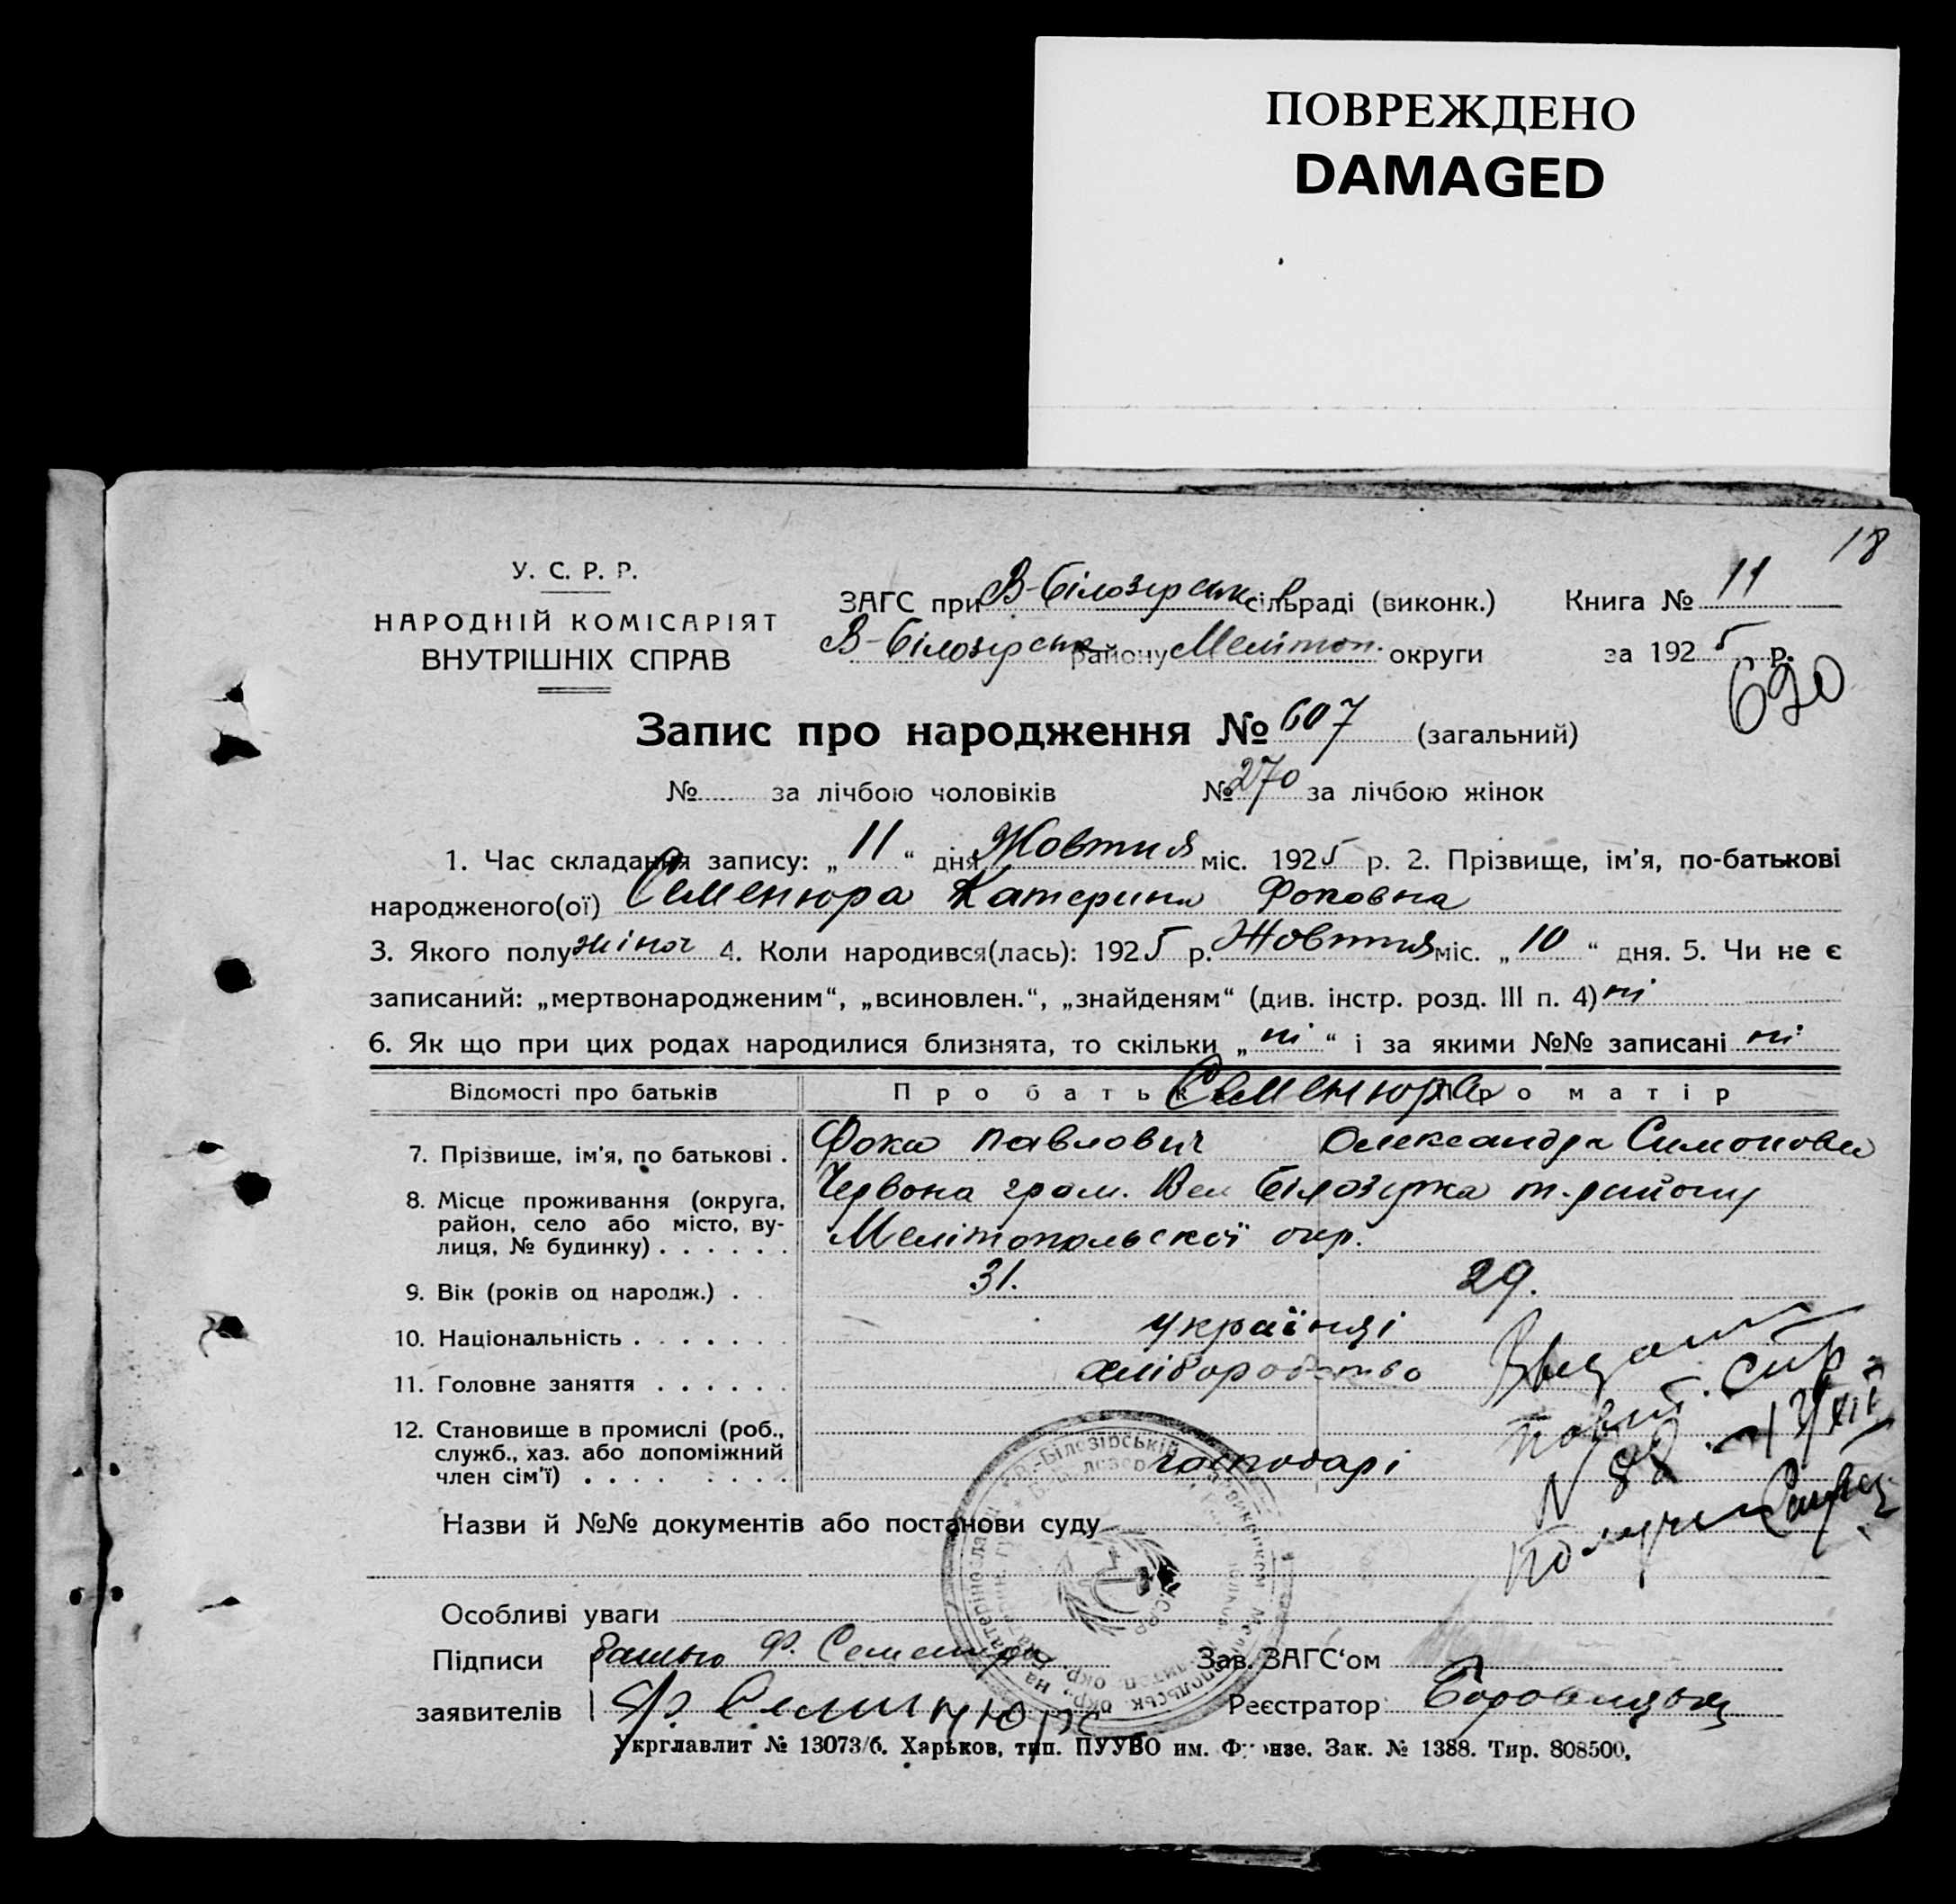 ПОВРЕЖДЕНО
DAMAGED
18
У. С. Р. Р.
НАРОДНІЙ КОМІСАРІЯТ
ВНУТРІШНІХ СПРАВ
ЗАГС при В-Білозірськ сільраді (виконк.) Книга № 11
В-Білозірськ району Мелітоп. округи за 1925 р.
690
Запис про народження № 607 (загальний)
№ за лічбою чоловіків № 270 за лічбою жінок
1. Час складання запису: „11“ дня Жовтня міс. 1925 р. 2. Прізвище, ім’я, по-батькові
народженого(ої) Семенюра Катерина Фоковна
3. Якого полу жіноч 4. Коли народився(лась): 1925 р. Жовтня міс. „10“ дня. 5. Чи не є
записаний: „мертвонародженим“, „всиновлен.“, „знайденям“ (див. інстр. розд. III п. 4) ні
6. Як що при цих родах народилися близнята, то скільки „ні“ і за якими №№ записані ні
Відомості про батьків Про батька Про матір
Семенюра
7. Прізвище, ім’я, по батькові . Фока Павлович Олександра Симонова
8. Місце проживання (округа, Червона грам. Вел Білозірка т-району
район, село або місто, ву-
лиця, № будинку) . . . . . . Мелітопольскої окр.
9. Вік (років од народж.) . . 31. 29.
10. Національність . . . . . . . українці
11. Головне заняття . . . . . . хліборобство
12. Становище в промислі (роб.,
служб., хаз. або допоміжний
член сім’ї) . . . . . . . . . господарі
N 82 13/XII
Назви й №№ документів або постанови суду
Особливі уваги
Підписи батько Ф. Семенюра Зав. ЗАГС‘ом
заявителів Ф. Семенюра Реєстратор
Укрглавлит № 13073/б. Харьков, тип. ПУУВО им. Фрунзе. Зак. № 1388. Тир. 808500.